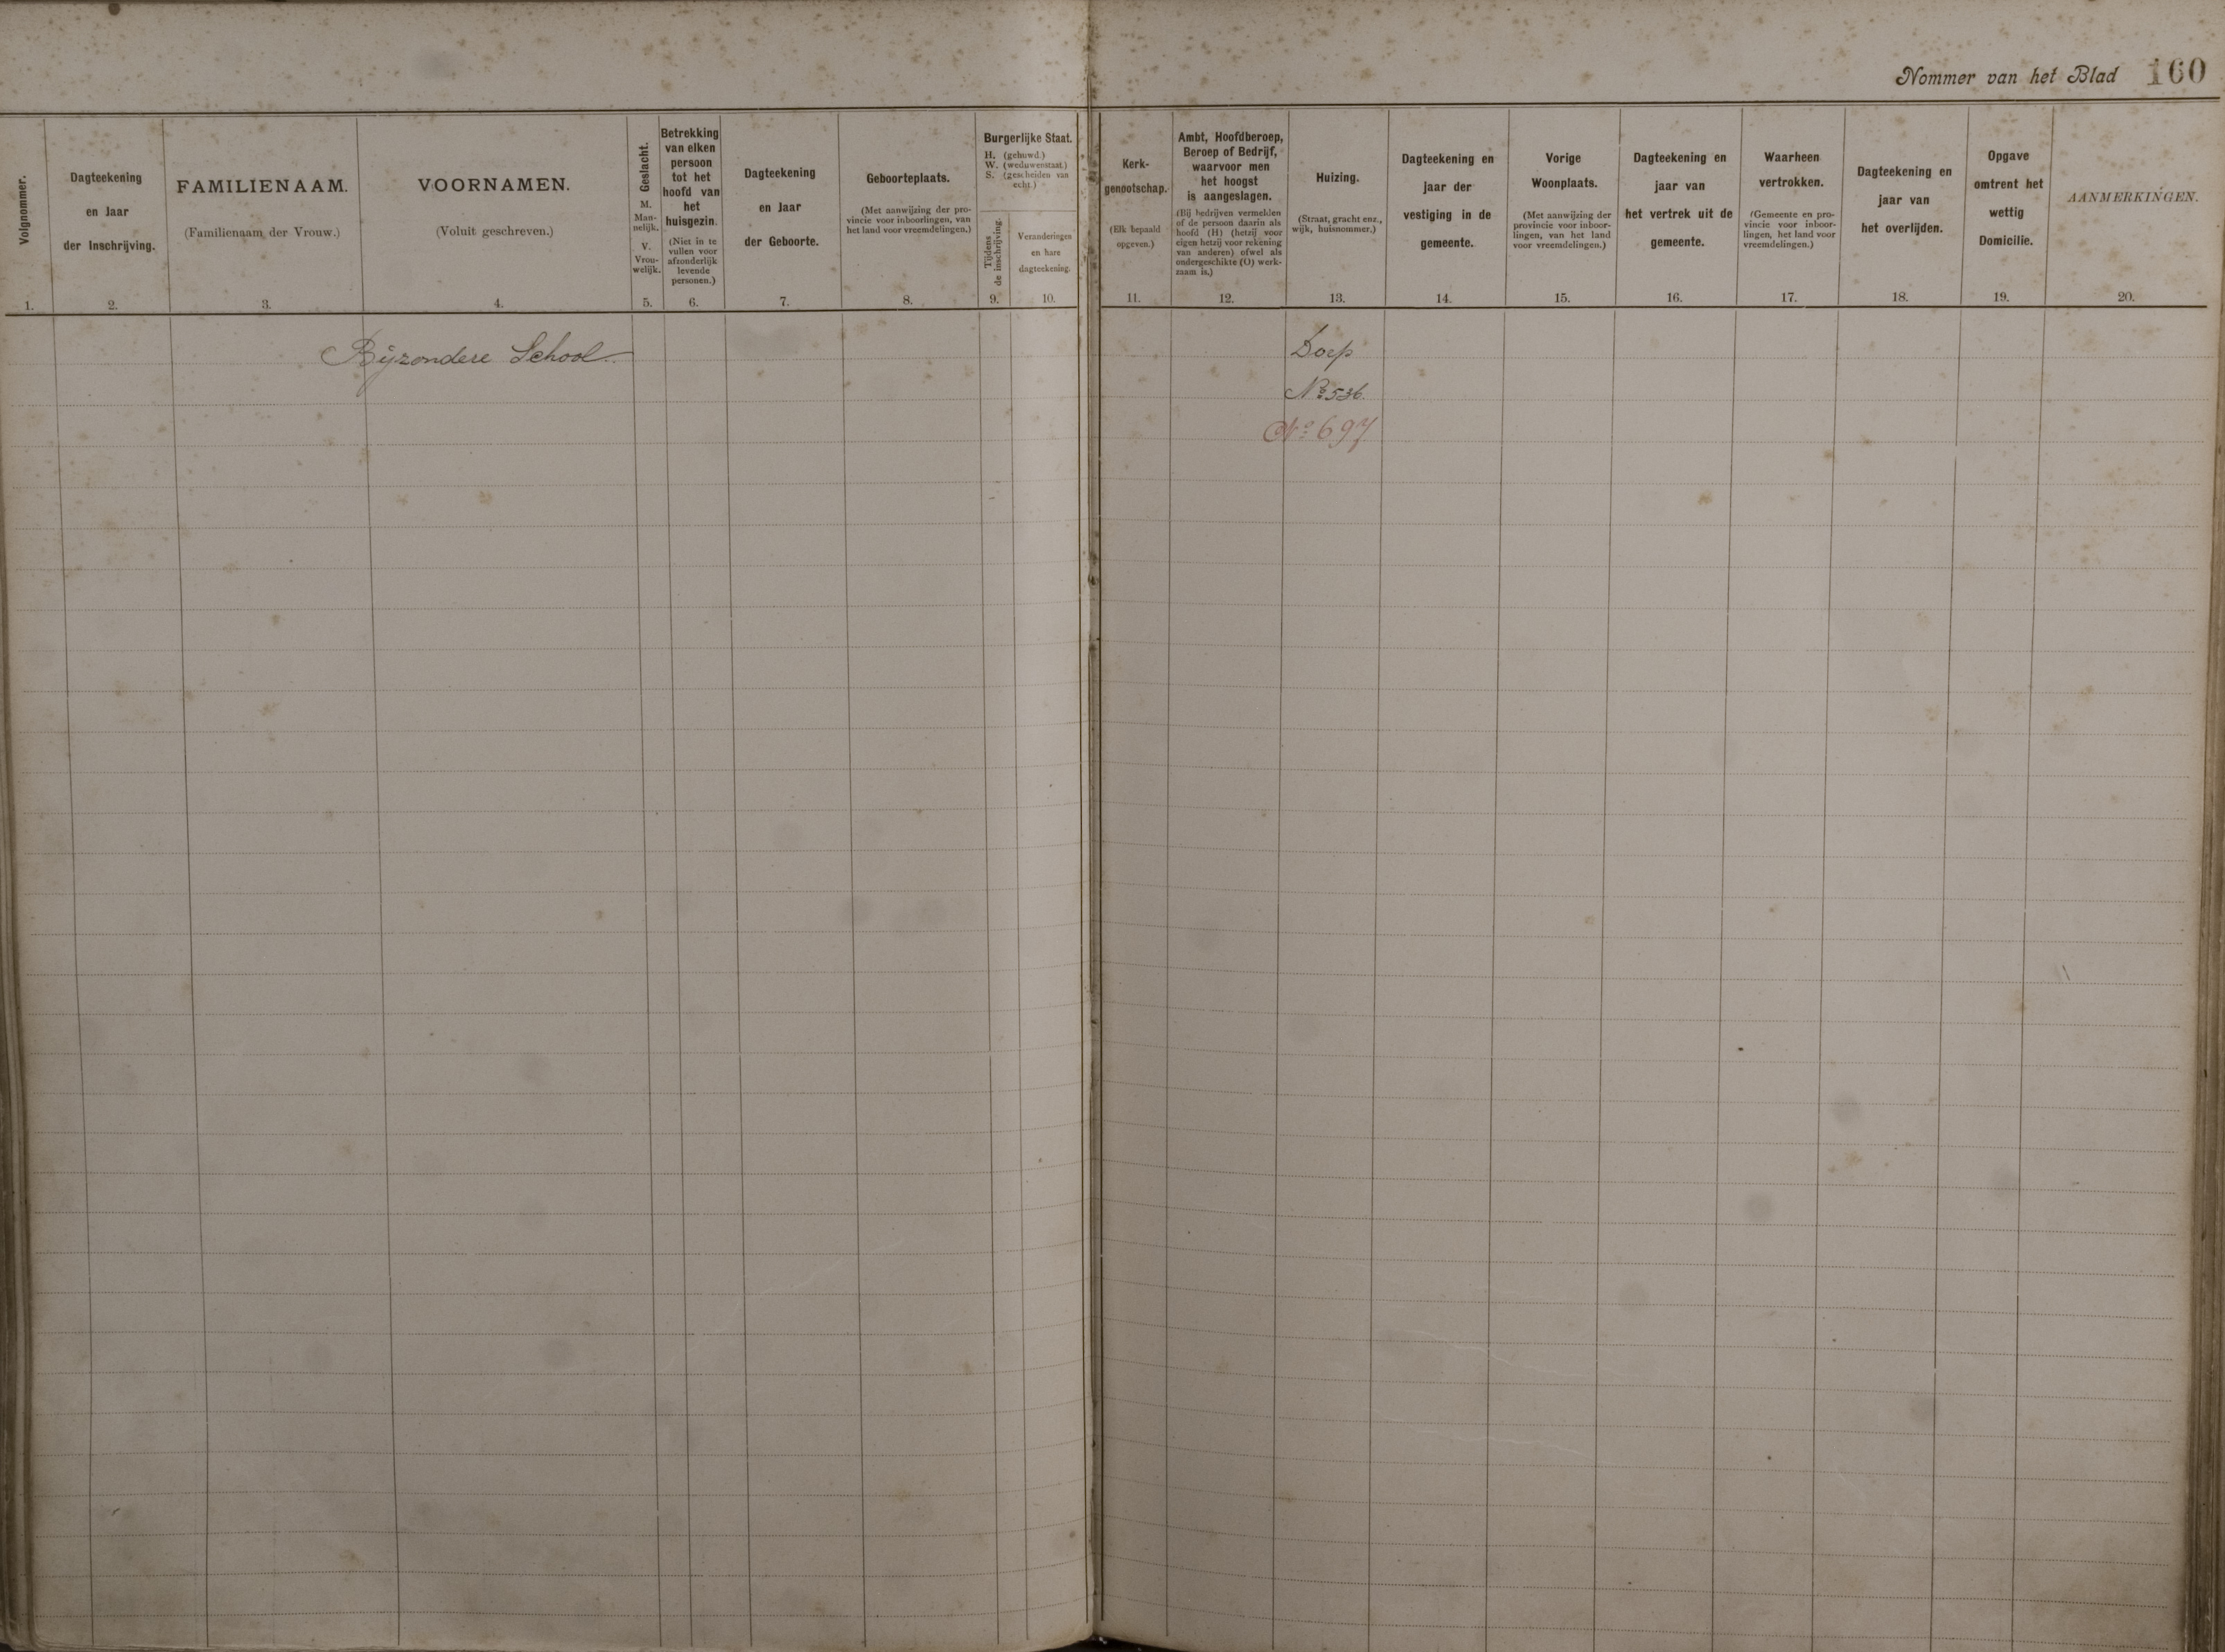 Nommer van het Blad 160
Volgnommer.
1.
Dagteekening
en Jaar
der Inschrijving.
2.
FAMILIENAAM.
(Familienaam der Vrouw.)
3.
VOORNAMEN.
(Voluit geschreven.)
4.
Geslacht.
M.
Man-
nelijk.
V.
Vrou-
welijk.
5.
Betrekking
van elken
persoon
tot het
hoofd van
het
huisgezin.
(Niet in te
vullen voor
afzonderlijk
levende
personen.)
6.
Dagteekening
en Jaar
der Geboorte.
7.
Geboorteplaats.
(Met aanwijzing der pro-
vincie voor inboorlingen, van
het land voor vreemdelingen.)
8.
Burgerlijke Staat.
H. (gehuwd.)
W. (weduwenstaat.)
S. (gescheiden van
echt.)
Tijdens
de inschrijving.
9.
Veranderingen
en hare
dagteekening.
10.
Kerk-
genootschap.
(Elk bepaald
opgeven.)
11.
Ambt, Hoofdberoep,
Beroep of Bedrijf,
waarvoor men
het hoogst
is aangeslagen.
(Bij bedrijven vermelden
of de persoon daarin als
hoofd (H) (hetzij voor
eigen hetzij voor rekening
van anderen) ofwel als
ondergeschikte (O) werk-
zaam is.)
12.
Huizing.
(Straat, gracht enz.,
wijk, huisnommer.)
13.
Dagteekening en
jaar der
vestiging in de
gemeente.
14.
Vorige
Woonplaats.
(Met aanwijzing der
provincie voor inboor-
lingen, van het land
voor vreemdelingen.)
15.
Dagteekening en
jaar van
het vertrek uit de
gemeente.
16.
Waarheen
vertrokken.
(Gemeente en pro-
vincie voor inboor-
lingen, het land voor
vreemdelingen.)
17.
Dagteekening en
jaar van
het overlijden.
18.
Opgave
omtrent het
wettig
Domicilie.
19.
AANMERKINGEN.
20.
Bijzondere School.
Dorp
No 536.
No 697